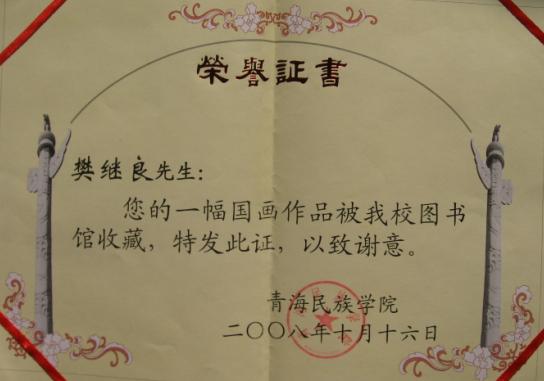 榮譽証書
樊继良先生：
您的一幅国画作品被我校图书
馆收藏，特发此证，以致谢意。
青海民族学院
二〇〇八年十月十六日